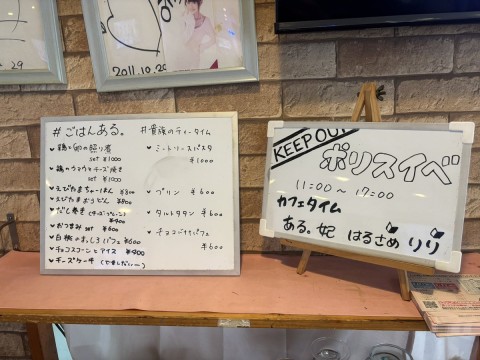 29
2011.10.29
#ごはんある。
♥鶏と卵の照り煮
set ¥1000
♥鶏のうまうまチーズ焼き
set ¥1000
♥えびたまちゃーはん ¥800
♥えびたまおうどん ¥800
♥だし巻き
¥400
♥おつまみ set ¥600
♥白桃のましろパフェ ¥600
♥チョコスコーンとアイス ¥400
♥チーズケーキ
#貴族のティータイム
♥ミートソースパスタ
¥1000
♥プリン ¥600
♥タルトタタン ¥600
♥チョコバナナパフェ
¥600
KEEP OUT
ポリスイベ
11:00〜17:00
カフェタイム
ある。妃 はるさめ りり